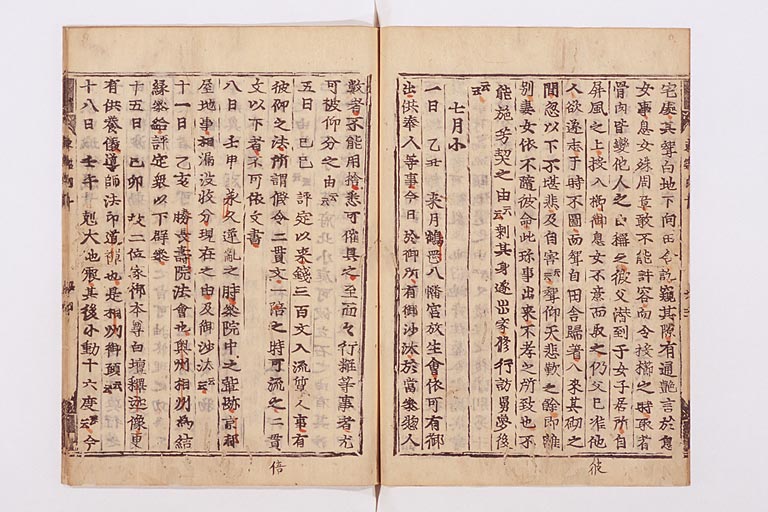 宅處其聲白地下向田舎訖窺其隙有通艶言於息
女事息女殊周章敢不能許容而令投櫛之時取者
骨肉皆變他人之由稱之彼父潜到于女子居所自
屏風之上投入櫛御息女不意而取之仍父已准他
人欲遂志于時不圖而聟自田舎歸着入來其砌之
間忽以下不堪悲及自害云聟仰天悲歎之餘即離
別妻女依不隨彼命此珎事出來不孝之所致也不
能施芳契之由云剩其身遂出家修行訪舅夢後
云
七月小
一日 乙丑 來月鶴岡八幡宮放生會依可有御
出供奉人等事今日於御所有御沙汰於當參惣人
數者不能用捨悉可催具之至面々行粧等事者尤
可被仰分之由云
五日 己巳 評定以來錢三百文入流質人事有
彼仰之法所謂假令二貫文一倍之時可流之二貫
文以下者不可依文書
八日 壬申 承久逆亂之時參院中之輩跡京都
屋地事相漏波收分現在之由及御沙汰云
十一日 乙亥 可勝長壽院法會也奥州相州為結
縁參給評定衆以下群參
十五日 己卯 故二位家御本尊白壇釋迦像東
有供養儀導師法印道禅也是相州御願云
十八日 壬午 剋大地震其後小動十六度云今
彼
倍